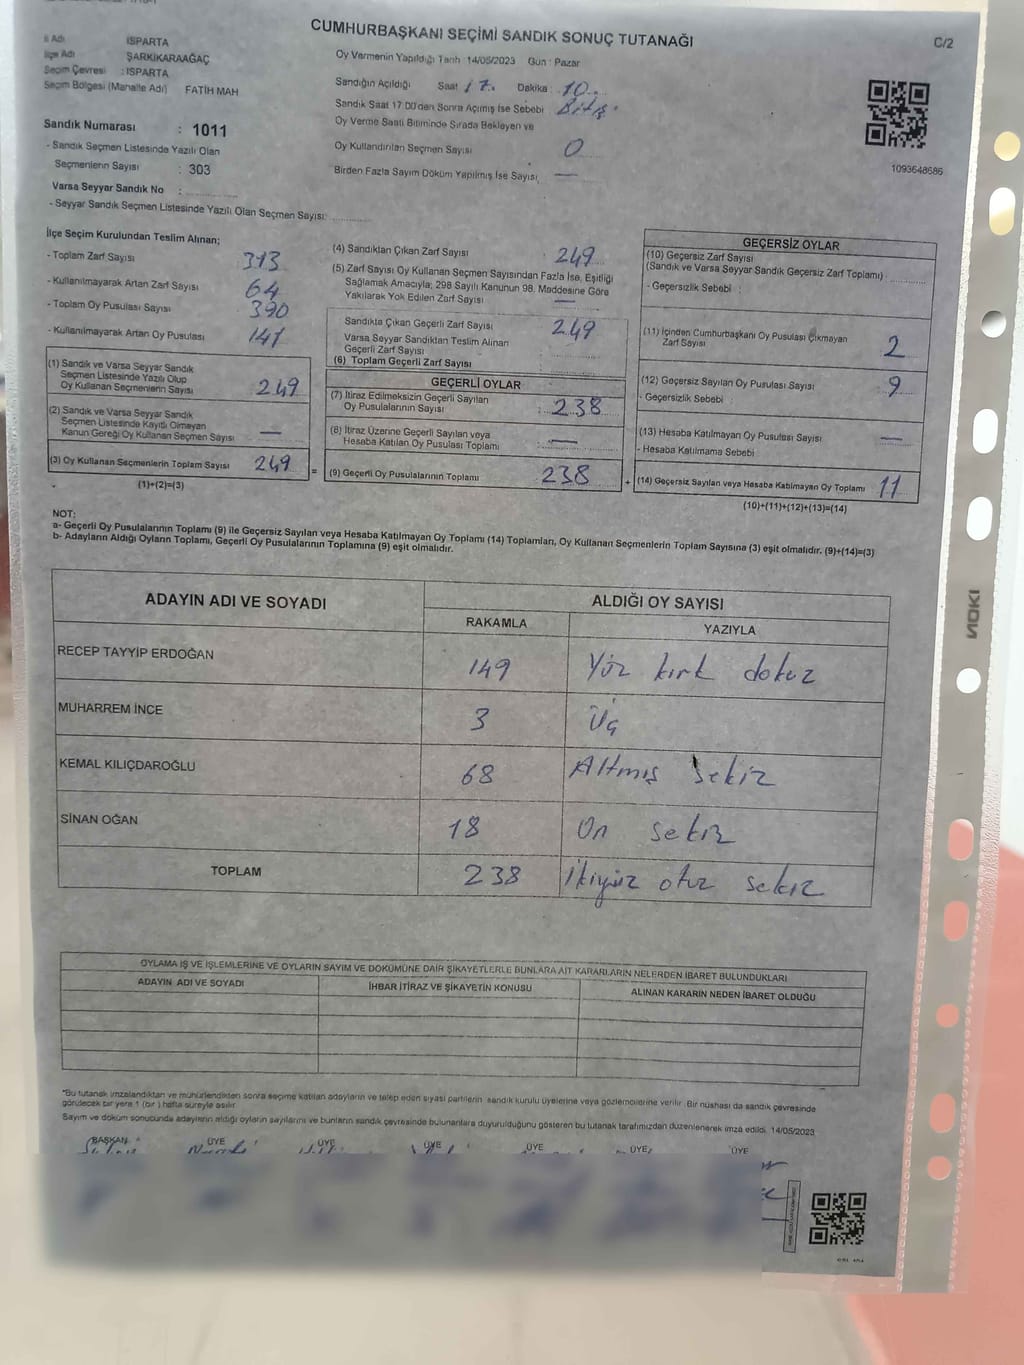 CUMHURBAŞKANI SEÇİMİ SANDIK SONUÇ TUTANAĞI
C/2
İl Adı ISPARTA
İlçe Adı ŞARKİKARAAĞAÇ
Seçim Çevresi : ISPARTA
Seçim Bölgesi (Mahalle Adı) FATİH MAH
Sandık Numarası : 1011
- Sandık Seçmen Listesinde Yazılı Olan
Seçmenlerin Sayısı : 303
Varsa Seyyar Sandık No :
- Seyyar Sandık Seçmen Listesinde Yazılı Olan Seçmen Sayısı:
Oy Vermenin Yapıldığı Tarih 14/05/2023 Gün : Pazar
Sandığın Açıldığı Saat 17. Dakika : 10
Sandık Saat 17:00'den Sonra Açımış İse Sebebi Bitiş
Oy Verme Saati Bitiminde Sırada Bekleyen ve
Oy Kullandırılan Seçmen Sayısı 0
Birden Fazla Sayım Döküm Yapılmış İse Sayısı —
1093648686
İlçe Seçim Kurulundan Teslim Alınan;
- Toplam Zarf Sayısı 313
- Kullanılmayarak Artan Zarf Sayısı 64
- Toplam Oy Pusulası Sayısı 390
- Kullanılmayarak Artan Oy Pusulası 141
(1) Sandık ve Varsa Seyyar Sandık
Seçmen Listesinde Yazılı Olup
Oy Kullanan Seçmenlerin Sayısı 249
(2) Sandık ve Varsa Seyyar Sandık
Seçmen Listesinde Kayıtlı Olmayan
Kanun Gereği Oy Kullanan Seçmen Sayısı —
(3) Oy Kullanan Seçmenlerin Toplam Sayısı 249
(1)+(2)=(3)
(4) Sandıktan Çıkan Zarf Sayısı 249
(5) Zarf Sayısı Oy Kullanan Seçmen Sayısından Fazla İse, Eşitliği
Sağlamak Amacıyla; 298 Sayılı Kanunun 98. Maddesine Göre
Yakılarak Yok Edilen Zarf Sayısı —
Sandıkta Çıkan Geçerli Zarf Sayısı 249
Varsa Seyyar Sandıktan Teslim Alınan
Geçerli Zarf Sayısı
(6) Toplam Geçerli Zarf Sayısı
GEÇERLİ OYLAR
(7) İtiraz Edilmeksizin Geçerli Sayılan
Oy Pusulalarının Sayısı : 238
(8) İtiraz Üzerine Geçerli Sayılan veya
Hesaba Katılan Oy Pusulası Toplamı : —
= (9) Geçerli Oy Pusulalarının Toplamı 238
GEÇERSİZ OYLAR
(10) Geçersiz Zarf Sayısı
(Sandık ve Varsa Seyyar Sandık Geçersiz Zarf Toplamı)
- Geçersizlik Sebebi :
(11) İçinden Cumhurbaşkanı Oy Pusulası Çıkmayan
Zarf Sayısı 2
(12) Geçersiz Sayılan Oy Pusulası Sayısı : 9
- Geçersizlik Sebebi :
(13) Hesaba Katılmayan Oy Pusulası Sayısı —
- Hesaba Katılmama Sebebi
+ (14) Geçersiz Sayılan veya Hesaba Katılmayan Oy Toplamı 11
(10)+(11)+(12)+(13)=(14)
NOT:
a- Geçerli Oy Pusulalarının Toplamı (9) ile Geçersiz Sayılan veya Hesaba Katılmayan Oy Toplamı (14) Toplamları, Oy Kullanan Seçmenlerin Toplam Sayısına (3) eşit olmalıdır. (9)+(14)=(3)
b- Adayların Aldığı Oyların Toplamı, Geçerli Oy Pusulalarının Toplamına (9) eşit olmalıdır.
ADAYIN ADI VE SOYADI
ALDIĞI OY SAYISI
RAKAMLA YAZIYLA
RECEP TAYYİP ERDOĞAN 149 Yüz kırk dokuz
MUHARREM İNCE 3 Üç
KEMAL KILIÇDAROĞLU 68 Altmış sekiz
SİNAN OĞAN 18 On sekiz
TOPLAM 238 İkiyüz otuz sekiz
OYLAMA İŞ VE İŞLEMLERİNE VE OYLARIN SAYIM VE DÖKÜMÜNE DAİR ŞİKAYETLERLE BUNLARA AİT KARARLARIN NELERDEN İBARET BULUNDUKLARI
ADAYIN ADI VE SOYADI
İHBAR İTİRAZ VE ŞİKAYETİN KONUSU
ALINAN KARARIN NEDEN İBARET OLDUĞU
"Bu tutanak imzalandıktan ve mühürlendikten sonra seçime katılan adayların ve talep eden siyasi partilerin sandık kurulu üyelerine veya gözlemcilerine verilir. Bir nüshası da sandık çevresinde
görülecek bir yere 1 (bir) hafta süreyle asılır.
Sayım ve döküm sonucunda adayların aldığı oyların sayılarını ve bunların sandık çevresinde bulunanlara duyurulduğunu gösteren bu tutanak tarafımızdan düzenlenerek imza edildi. 14/05/2023
BAŞKAN ÜYE ÜYE ÜYE ÜYE ÜYE ÜYE
NOKI